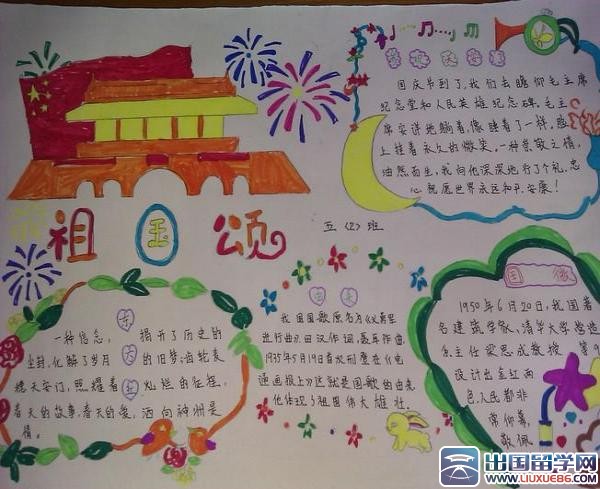 祖国颂
五（2）班
国庆节到了，我们去瞻仰毛主席
纪念堂和人民英雄纪念碑。毛主
席安详地躺着，像睡着了一样，脸
上挂着永久的微笑，一种崇敬之情，
油然而生，我向他深深地行了个礼，忠
心祝愿世界永远和平、安康！
一种信念，揭开了历史的
尘封，化解了岁月的旧梦，
穗天安门，照耀着灿烂的征程，
春天的故事，春天的爱，洒向神州是
情。
国歌
我国国歌原名为《义勇军
进行曲》，田汉作词，聂耳作曲，
1935年5月19日首次刊登在《电
通画报》上，这就是国歌的由来
他体现了祖国伟大雄壮。
国徽
1950年6月20日，我国著
名建筑学家、清华大学营造
系主任梁思成教授等
设计出金红两
色，人民都非
常仰慕，
敬佩
出国留学网
WWW.LIUXUE86.COM